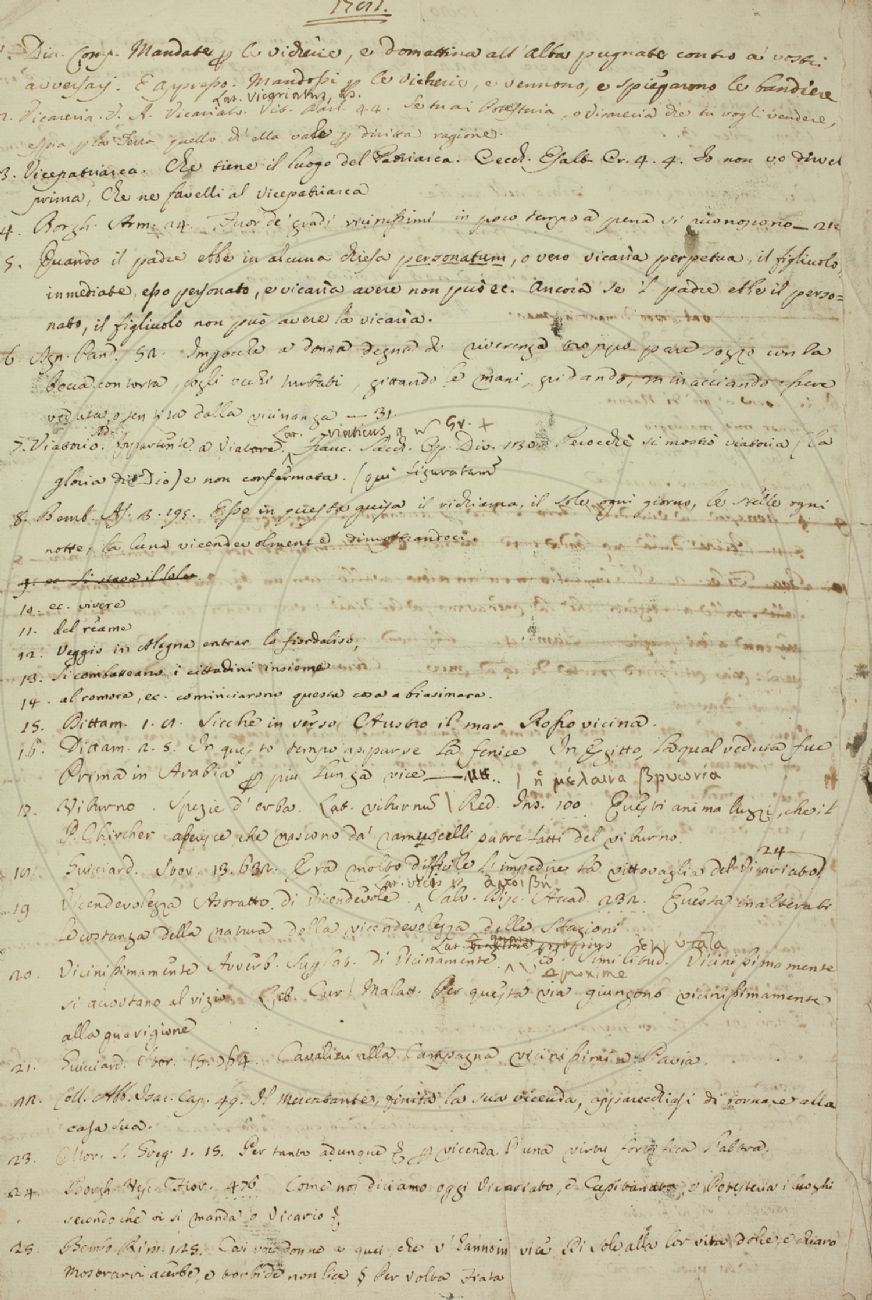 1701.
1. Din. Comp. Mandate p le vicherie, e domattina all'alba pugnate contro a' vostri
avversarj. E appresso. Mandossi p le vicherie, e vennono, e spiegarono le bandiere
Lat. Vicariatus, us.
2. Vicareria. V. A. Vicariato. Vit. Plut. 44. Se tu ai Potesteria, o vicareria che tu vogli vendere,
essia p la Terra quello di ella vale p diritta ragione.
3. Vicepatriarca. Che tiene il luogo del Patriarca. Cecch. Esalt. Cr. 4. 4. Io non vo dirvel
prima, che ne favelli al vicepatriarca
4. Borgh. Arm. 24. Fuor de' gradi vicinissimi in poco tempo a pena si riconoscono — 21
5. Quando il padre ebbe in alcuna chiesa personatum, o vero vicaria perpetua, il figliuolo
inmediate esso personato, e vicaria avere non può ec. Ancora se 'l padre ebbe il perso=
nato, il figliuolo non può avere la vicaria.
6. Agn. Pand. 52. Impocchè a donna degna di riverenza troppo pare sozzo con la
bocca contorta, cogli occhi turbati, gittando le mani, gridando, minacciando essere
veduta, o sentita dalla vicinanza — 31.
7. Viatorio. Ad. Appartenente a Viatore. Lat. viaticus, a, um Gr. + Franc. Sacch. Op. Div. 130. Perocchè si mostrò viatoria (la
gloria di Dio) e non confermata. (qui figuratam.
8. Bemb. As. 2. 195. Esse in questa guisa il richiama, il sole ogni giorno, le stelle ogni
notte, la luna vicendevolmente dimostrandoci
9. ec. si stava il sole
10. ec. vivere
11. del reame
12. Veggio in Alagna entrar lo fiordaliso,
13. Si combatteano i cittadini insieme
14. al romore, ec. cominciarono questa cosa a biasimare.
15. Dittam. 1. 9. Sicchè in verso l'Austro il mar Rosso vicina.
16. Dittam. 2. 5. In questo tempo apparve la fenice In Egitto, la qual veduta fue
Prima in Arabia p più lunga vice — ἡ μέλαινα βρυωνία
17. Viburno. Spezie d'erba. Lat. viburnum Red. Ins. 100. Questi animaluzzi, che il
P. Chircher asserisce che nascono da' ramuscelli putrefatti del viburno.
18. Guicciard. Stor. 13. 632. Era molto difficile l'impedire la vittovaglia del Vicariato) 24
19. Vicendevolezza Astratto di Vicendevole. Lat. vices ἀμοιβή. Salv. Disc. Accad. 232. Questa inalterabi
le costanza della natura della vicendevolezza delle Stagioni
20. Vicinissimamente Avverb. Superl. di Vicinamente. Lat. proxime Gr. Libr. Similitud. Vicinissimamente
si accostano al vizio. Lib. Cur. Malatt. Per questa via giungono vicinissimamente
alla guarigione
21. Guicciard. Stor. 15. 764. Cavalieri alla Campagna vicinissimi a Pavia.
22. Coll. Abb. Isac. Cap. 49. Il Mercatante, finita la sua vicenda, apparecchiasi di tornare alla
casa sua.
23. Mor. S. Greg. 1. 15. Per tanto adunque p vicenda l'una virtù fortifica l'altra.
24. Borgh. Vesc. Fior. 476 Come noi diciamo oggi Vicariato, e Capitanato, o Potesteria i luoghi
secondo che vi si manda o Vicario
25. Bembo Rim. 125. Così voi donne a quei che v'hanno in vice Di sole alla lor vita dolce e chiaro
Mostrarvi acerbe, e torbide non lice § Per volta, Fiata